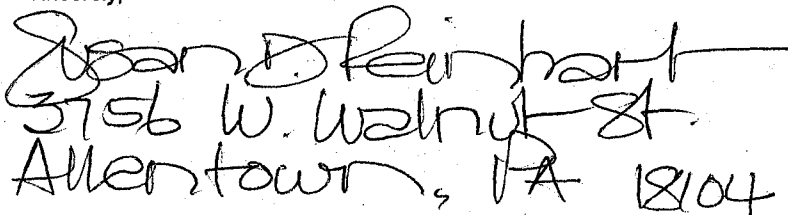 Sincerely,
Susan D. Reinhart
3756 W. Walnut St.
Allentown, PA 18104